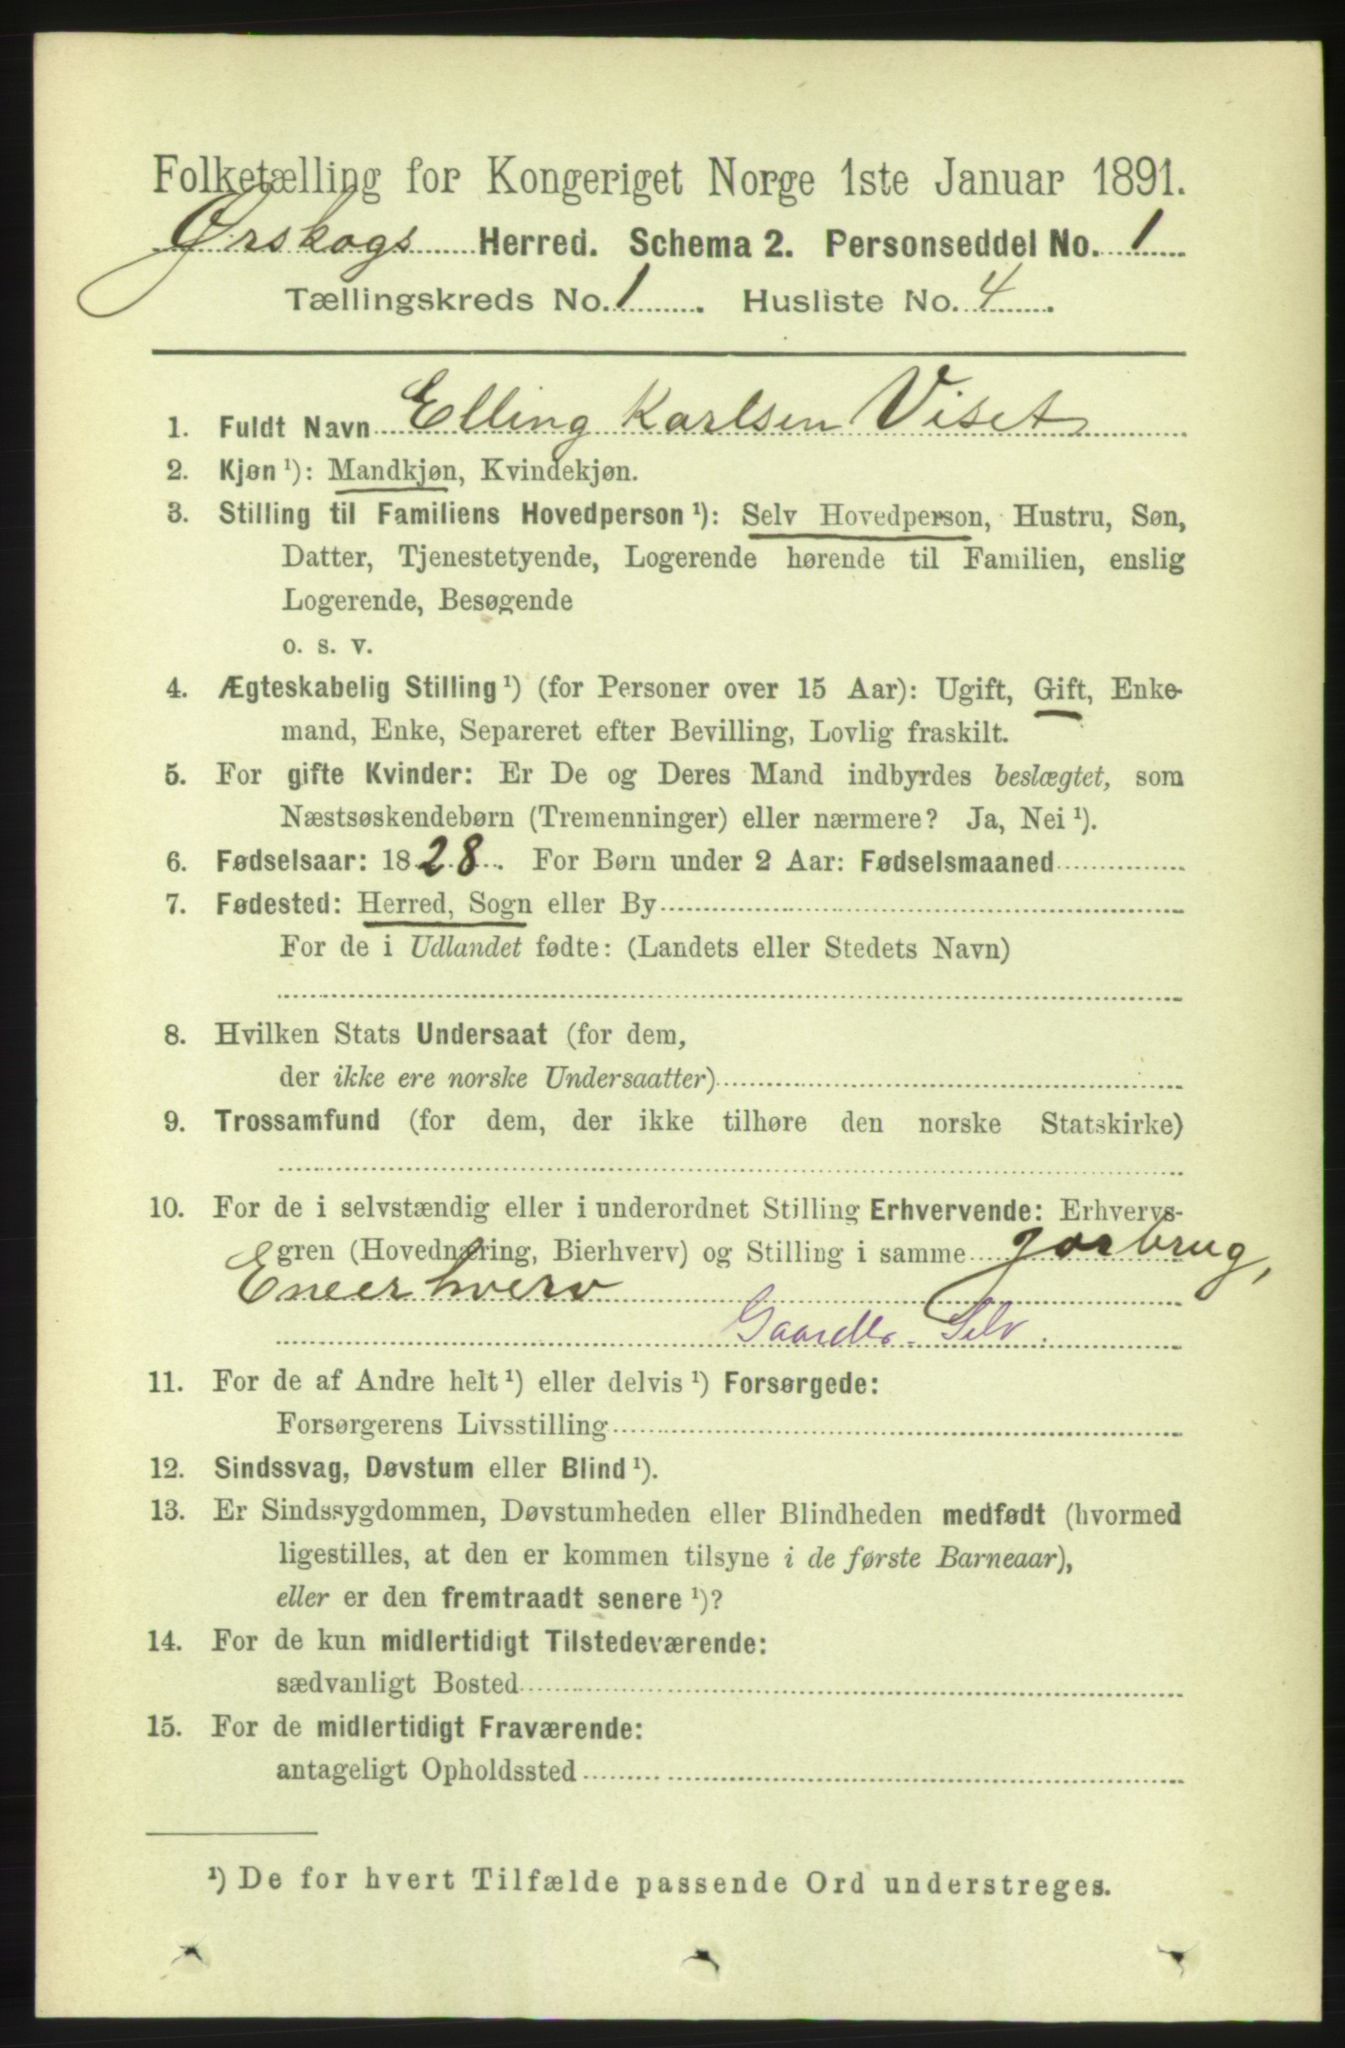 Folketælling for Kongeriget Norge 1ste Januar 1891.
Ørskogs Herred. Schema 2. Personseddel No. 1
Tællingskreds No. 1. Husliste No. 4.
1. Fuldt Navn Elling Karlsen Viset
2. Kjøn ¹): Mandkjøn, Kvindekjøn.
3. Stilling til Familiens Hovedperson ¹): Selv Hovedperson, Hustru, Søn,
Datter, Tjenestetyende, Logerende hørende til Familien, enslig
Logerende, Besøgende
o. s. v.
4. Ægteskabelig Stilling ¹) (for Personer over 15 Aar): Ugift, Gift, Enke-
mand, Enke, Separeret efter Bevilling, Lovlig fraskilt.
5. For gifte Kvinder: Er De og Deres Mand indbyrdes beslægtet, som
Næstsøskendebørn (Tremenninger) eller nærmere? Ja, Nei ¹).
6. Fødselsaar: 1828. For Børn under 2 Aar: Fødselsmaaned
7. Fødested: Herred, Sogn eller By
For de i Udlandet fødte: (Landets eller Stedets Navn)
8. Hvilken Stats Undersaat (for dem,
der ikke ere norske Undersaatter)
9. Trossamfund (for dem, der ikke tilhøre den norske Statskirke)
10. For de i selvstændig eller i underordnet Stilling Erhvervende: Erhvervs-
gren (Hovednæring, Bierhverv) og Stilling i samme Jorbrug,
Eneerhverv
Gaardbr. Selv.
11. For de af Andre helt ¹) eller delvis ¹) Forsørgede:
Forsørgerens Livsstilling
12. Sindssvag, Døvstum eller Blind ¹).
13. Er Sindssygdommen, Døvstumheden eller Blindheden medfødt (hvormed
ligestilles, at den er kommen tilsyne i de første Barneaar),
eller er den fremtraadt senere ¹)?
14. For de kun midlertidigt Tilstedeværende:
sædvanligt Bosted
15. For de midlertidigt Fraværende:
antageligt Opholdssted
¹) De for hvert Tilfælde passende Ord understreges.